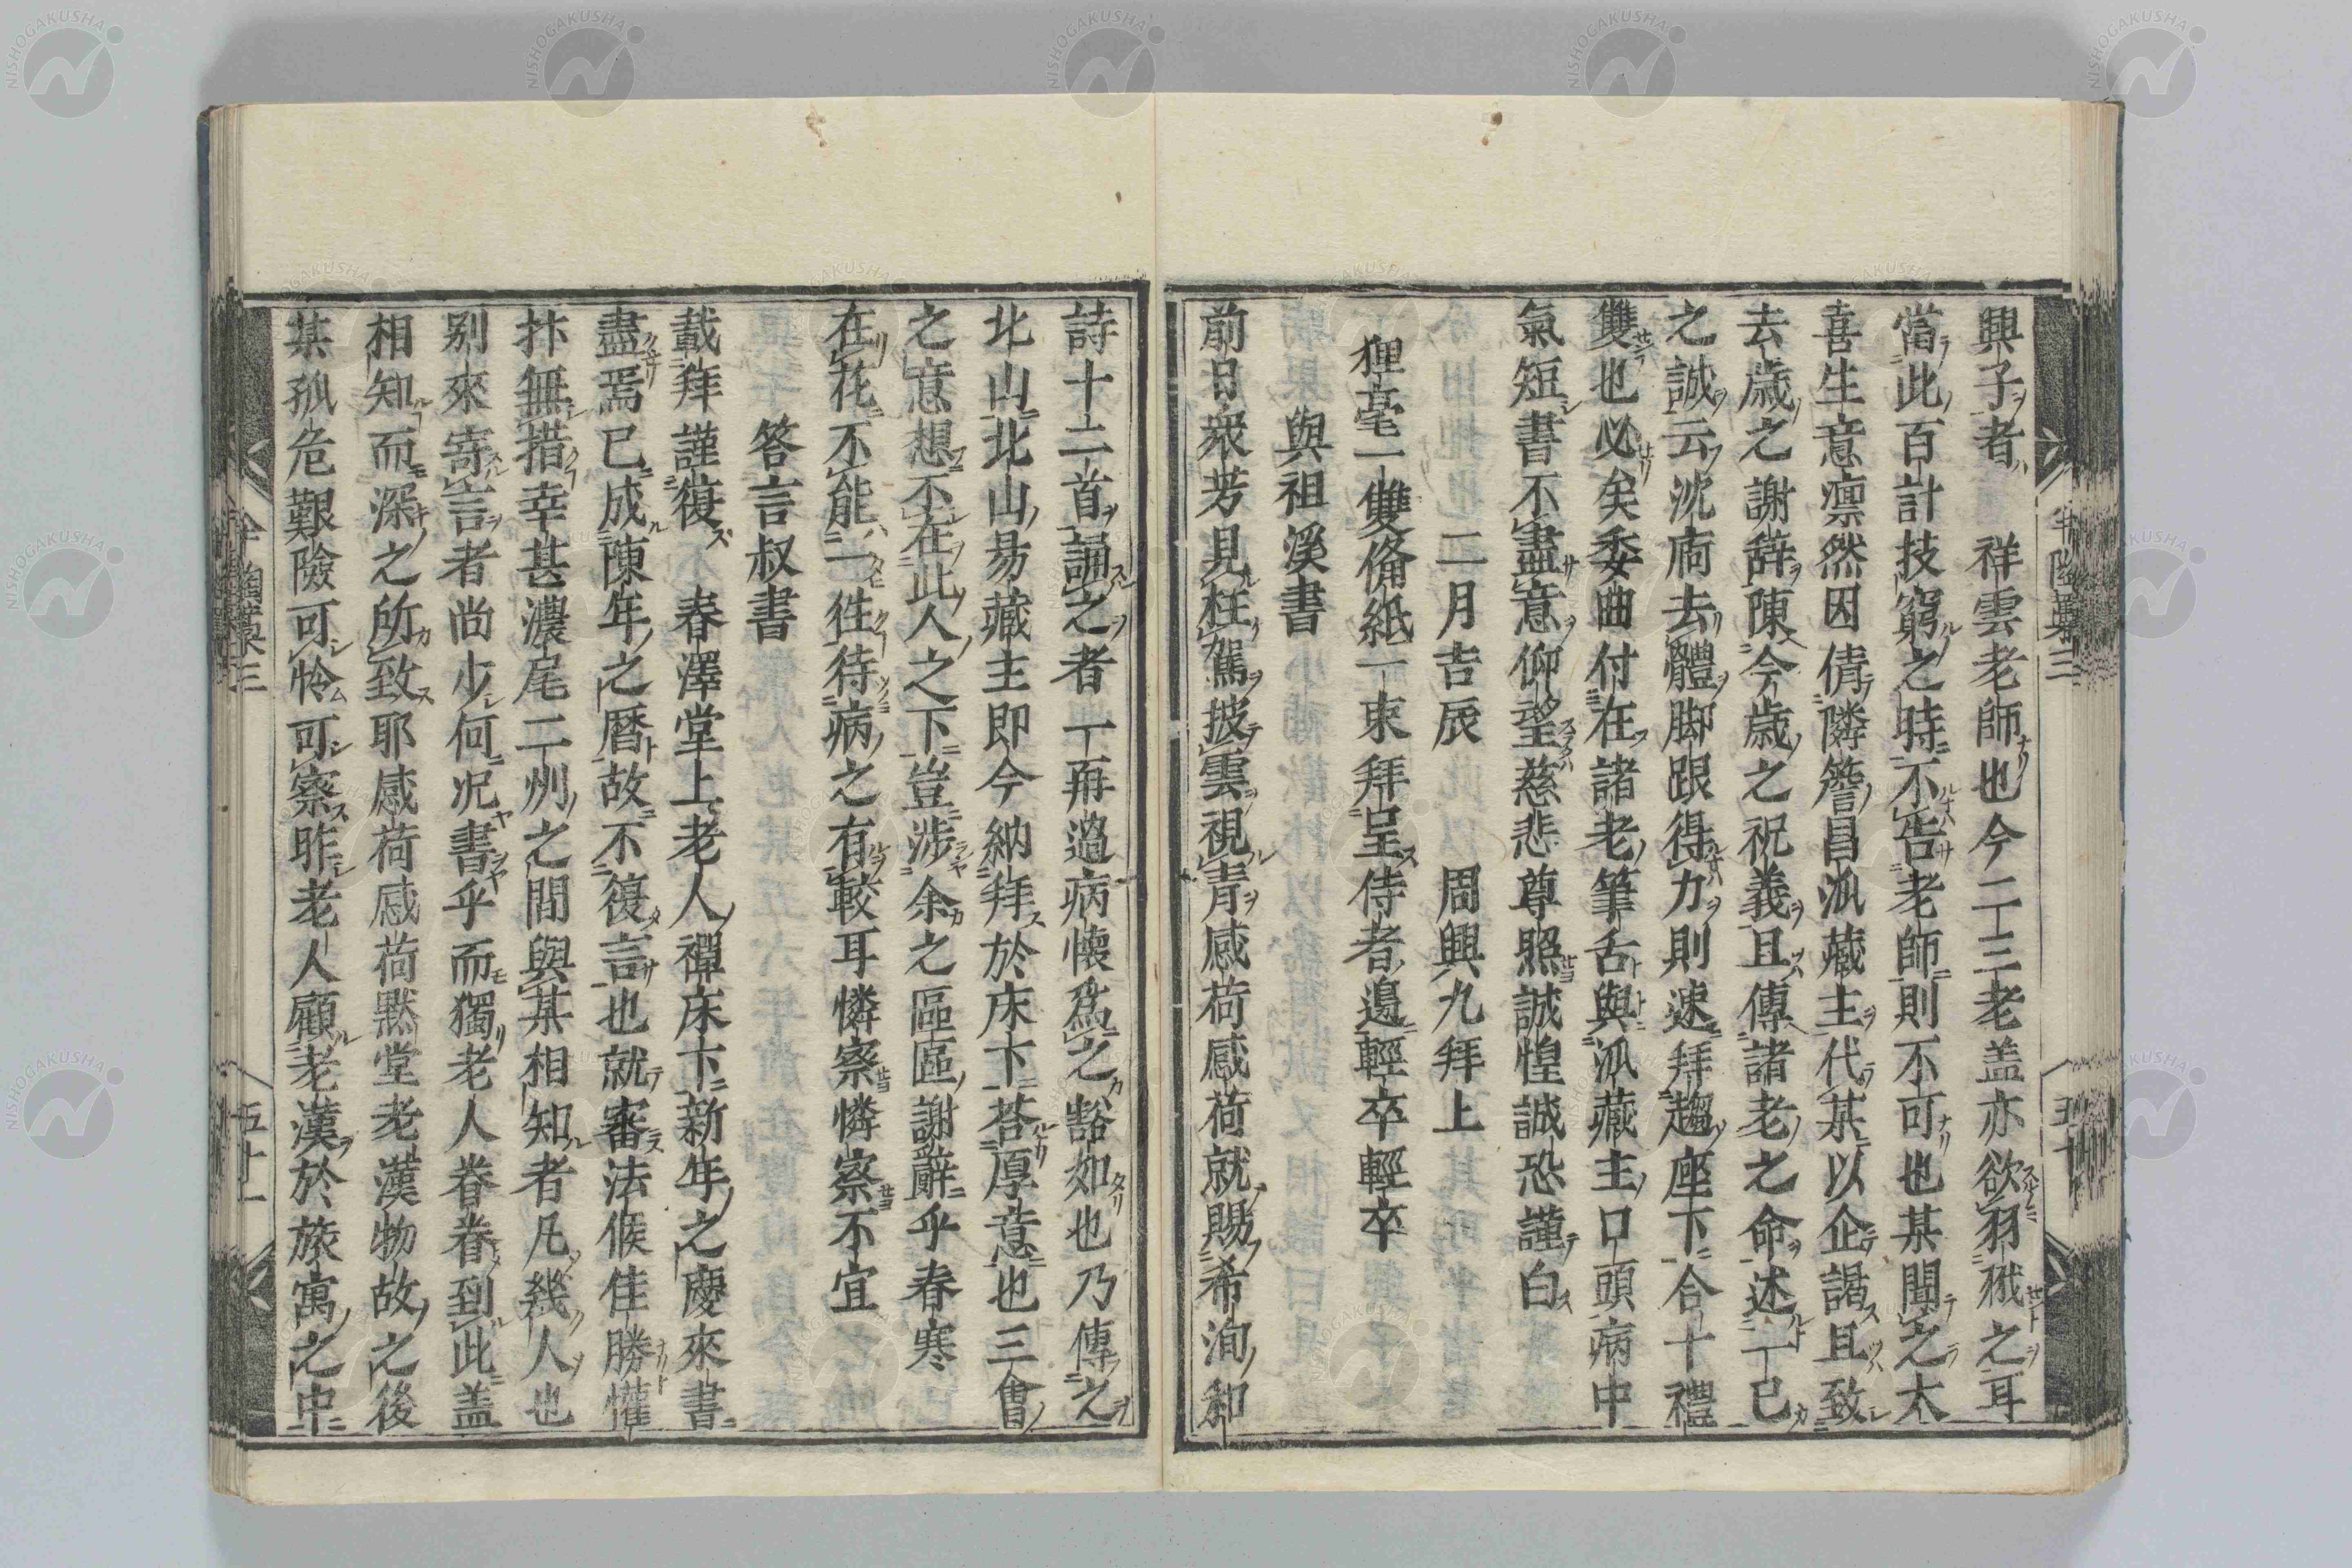 興子者　祥雲老師也今二三老盖亦欲羽獵之耳
當此百計技窮之時不告老師則不可也某聞之太
喜生意凛然因倩隣簷昌派藏主代某以企謁且致
去歳之謝辞陳今歳之祝義且傳諸老之命述一己
之誠云沈痾去體脚跟得力則速拜趨座下合十禮
雙也必矣委曲付在諸老筆舌與派藏主口頭病中
氣短書不盡意仰望慈悲尊照誠惶誠恐謹白
二月吉辰　周興九拜上
狸毫一雙俻紙一束拜呈侍者邊輕卒輕卒
與祖溪書
前日衆芳見枉駕披雲視青感荷感荷就賜希洵和
詩十二首誦之者一再過病懐爲之豁如也乃傳之
北山北山易藏主即今納拜於床下荅厚意也三會
之意想不在此人之下豈涉余之區區謝辭乎春寒
在花不能一徃待病之有較耳憐察憐察不宜
答言叔書
載拜謹復　春澤堂上老人禪床下新年之慶來書
盡焉已成陳年之暦故不復言也就審法候佳勝懽
抃無措幸甚濃尾二州之間與某相知者凡幾人也
别來寄言者尚少何况書乎而獨老人眷眷到此盖
相知而深之所致耶感荷感荷黙堂老漢物故之後
某孤危艱險可怜可察昨老人顧老漢於旅寓之中
五十
五十一